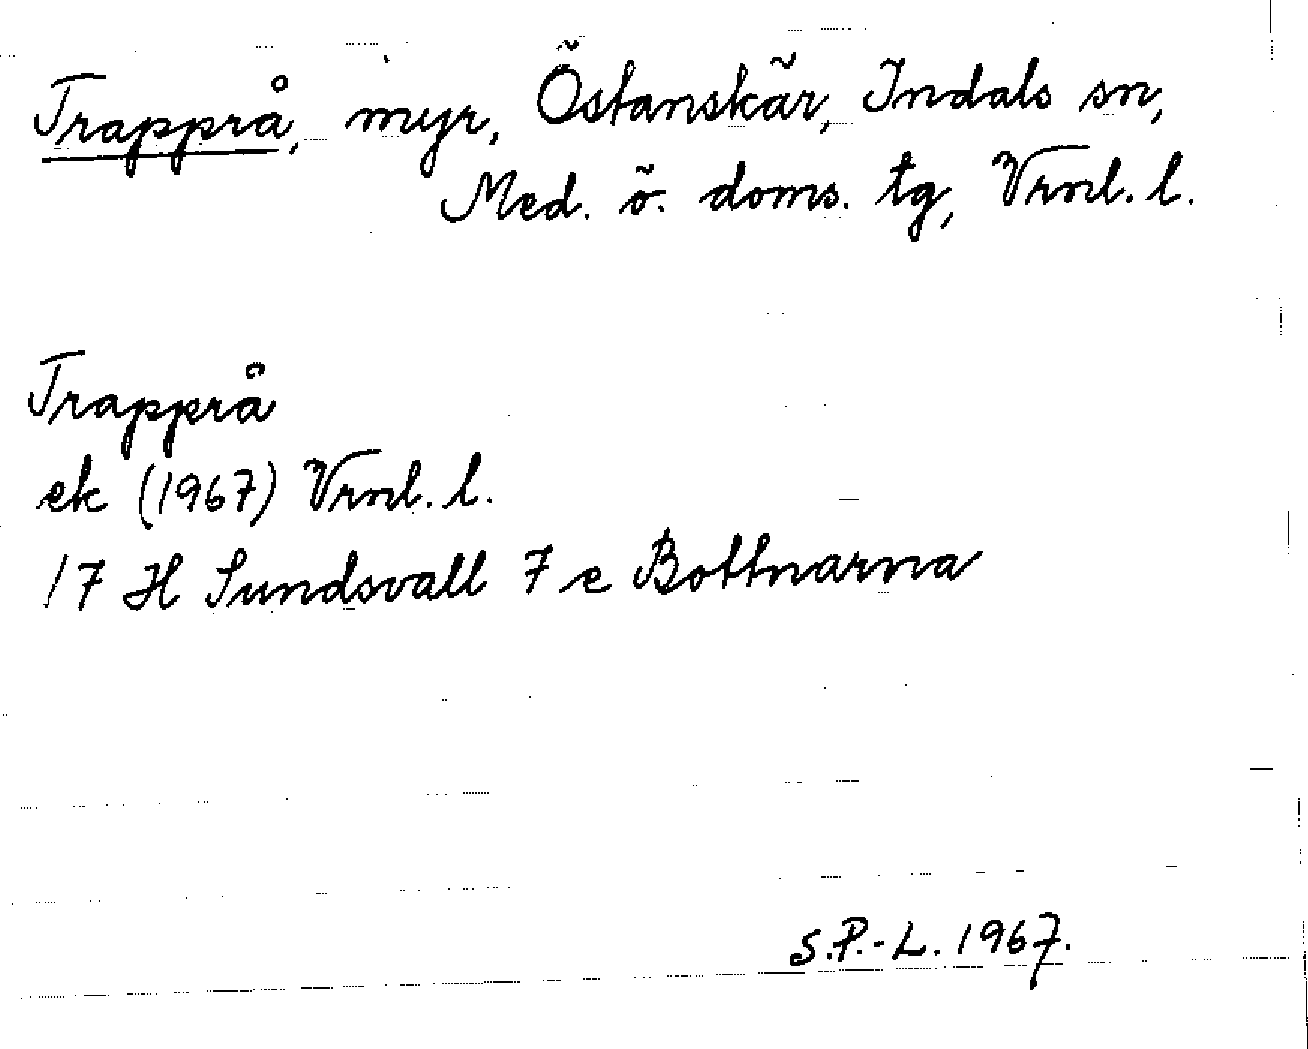 Trapprå, myr, Östanskär, Indals sn,
Med. ö. doms. tg, Vrnl. l.
Trapprå
ek (1967) Vrnl. l.
17 H Sundsvall 7 e Bottnarna
S.P.-L. 1967.